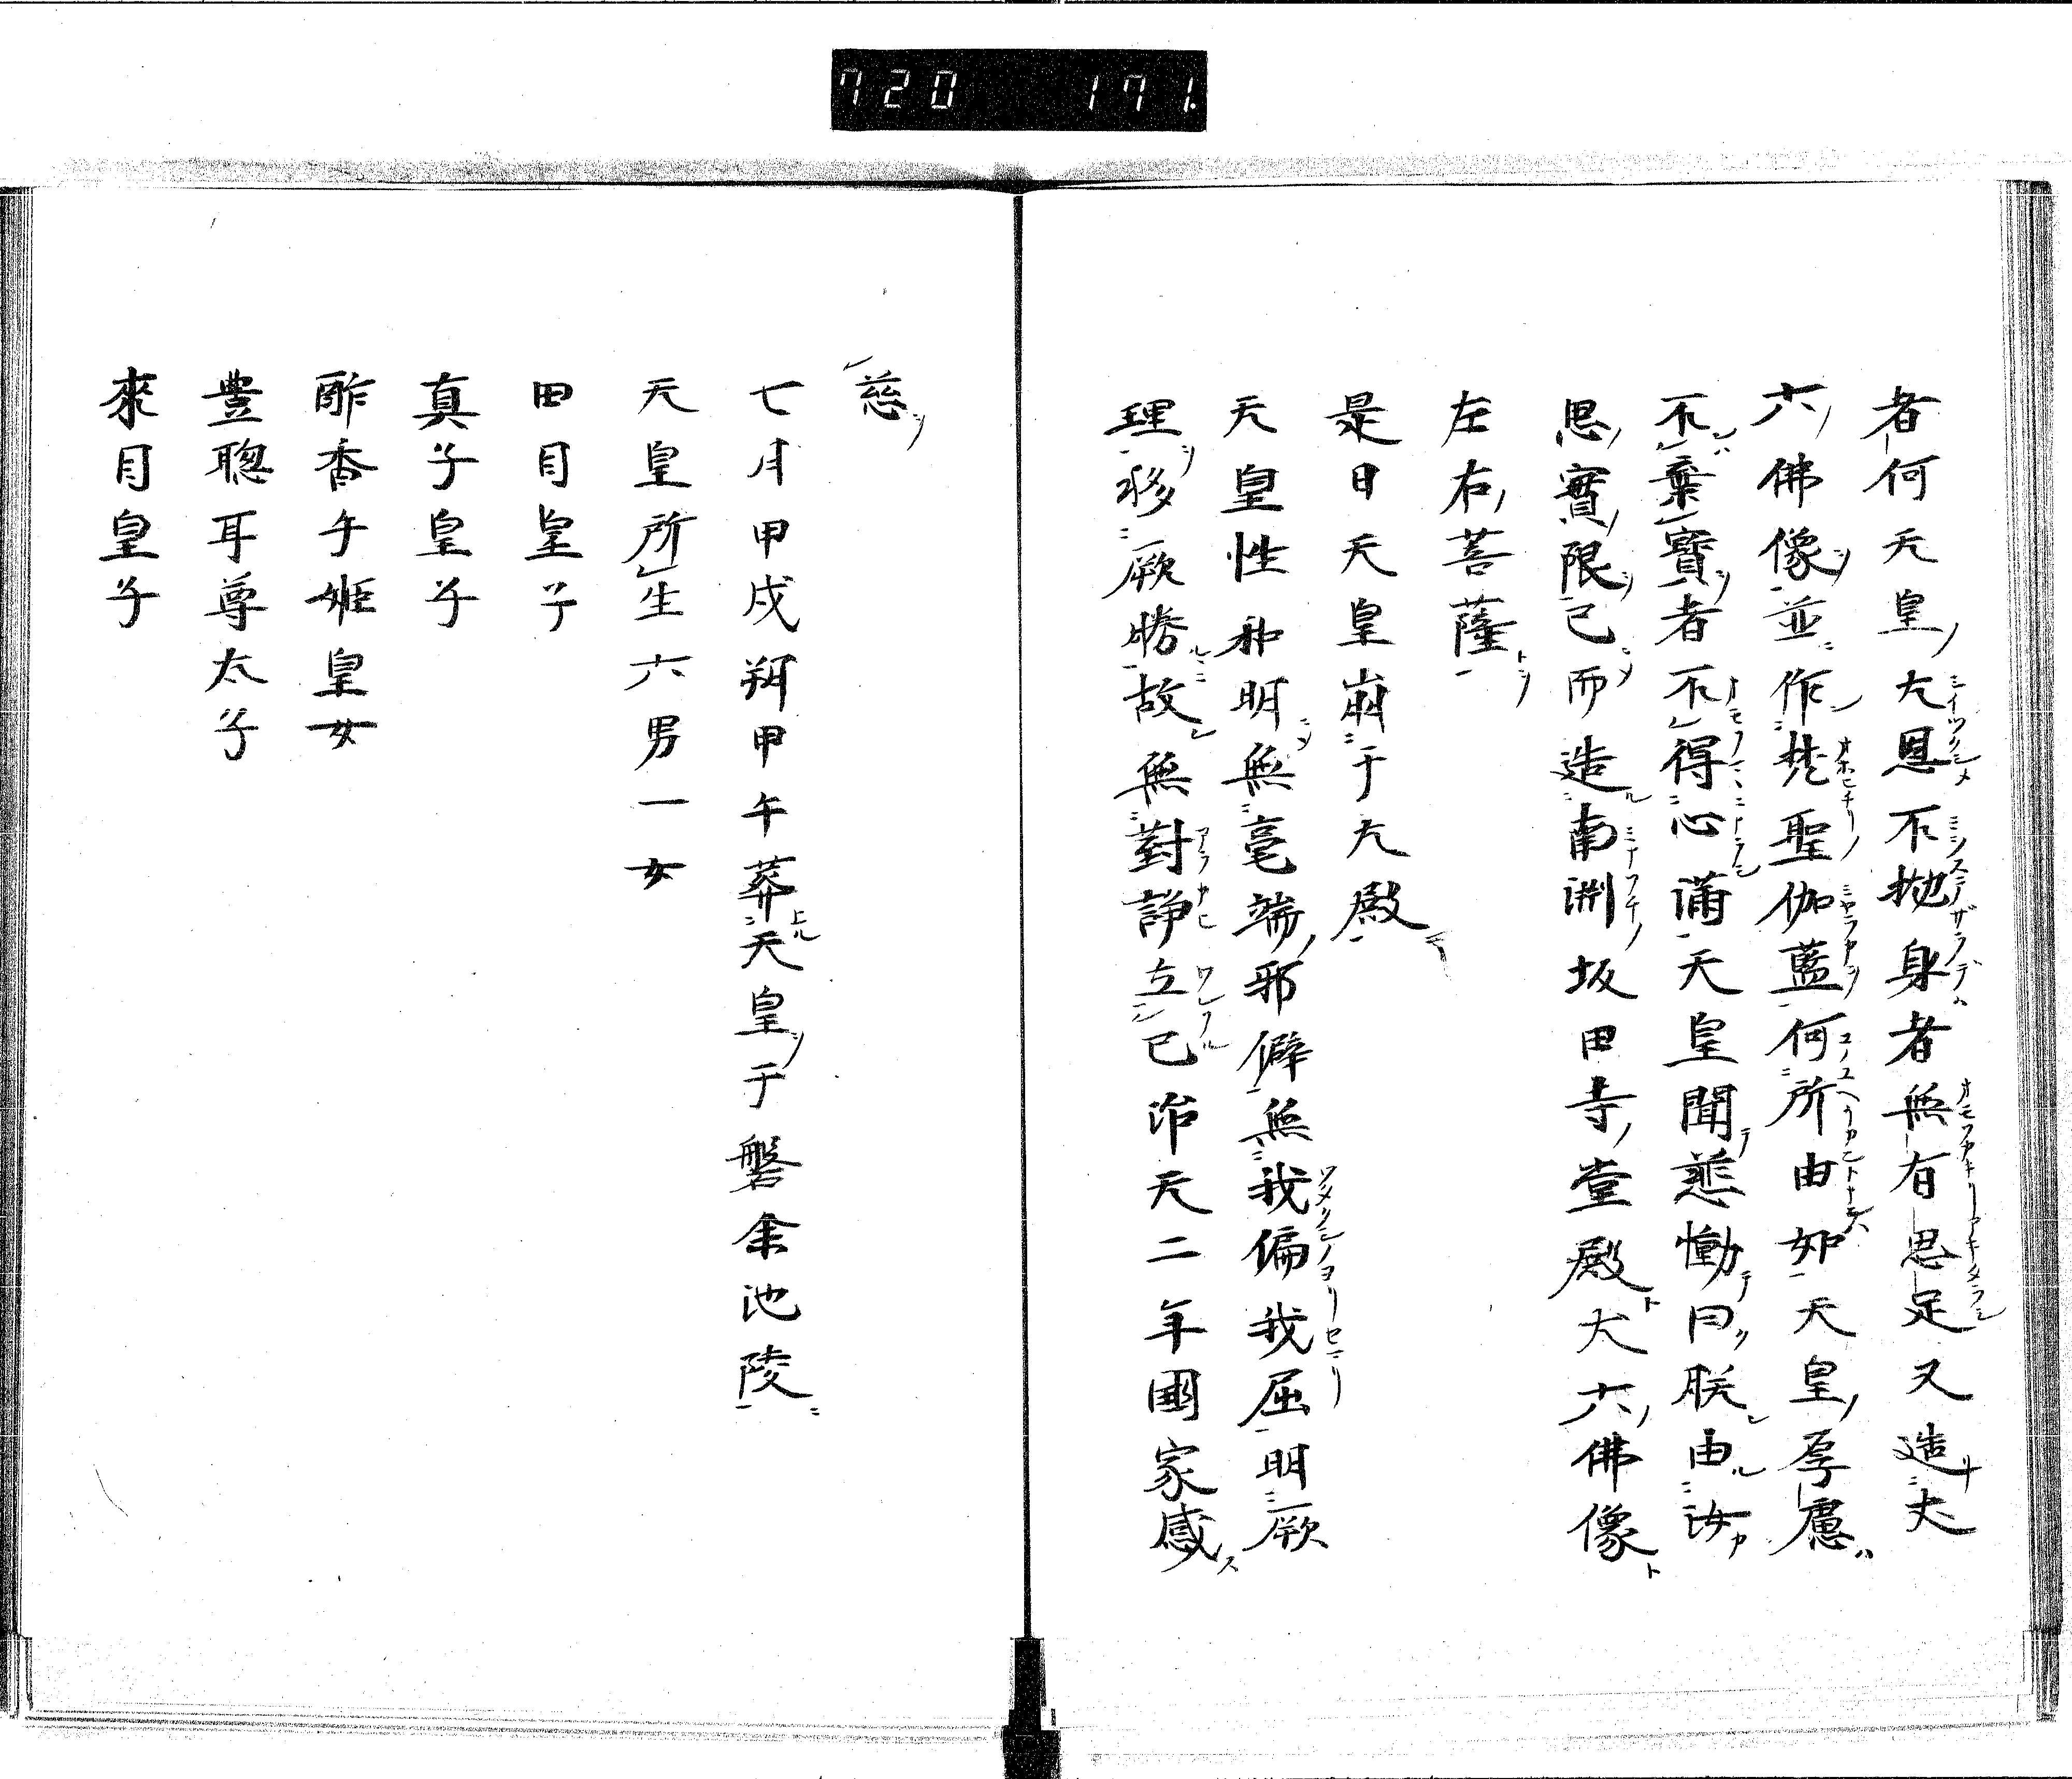 720 171.
者何天皇大恩不抛身者無有思足又造丈
六佛像並作梵聖伽藍何所由如天皇厚慮
不棄寶者不得心蒲天皇聞悲慟曰朕由汝
思實限已而造南渕坂田寺堂殿丈六佛像
左右菩薩
是日天皇崩于大殿
天皇性和明無毫端邪僻無我偏我屈明厥
理移厥勝故無對諍立已治天二年國家感
慈
七月甲戌朔甲午葬天皇于磐余池陵
天皇所生六男一女
田目皇子
真子皇子
酢香手姫皇女
豊聰耳尊太子
來目皇子